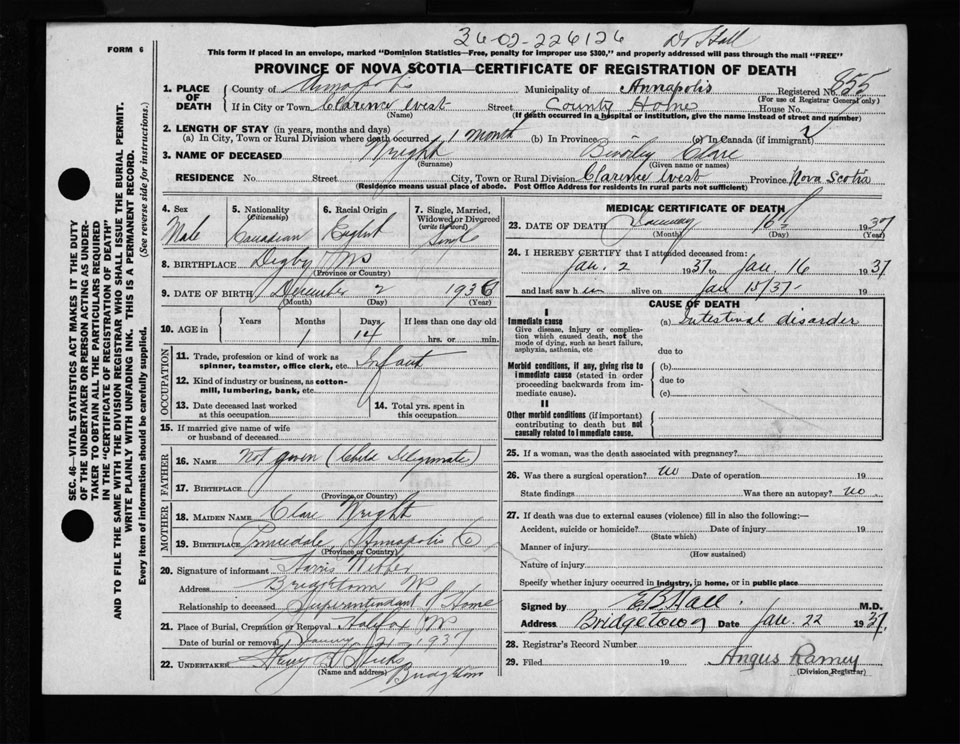 36-02-226126
Dr Hall
FORM 6
This form if placed in an envelope, marked "Dominion Statistics—Free, penalty for improper use $300," and properly addressed will pass through the mail "FREE"
PROVINCE OF NOVA SCOTIA—CERTIFICATE OF REGISTRATION OF DEATH
1. PLACE OF DEATH
County of Annapolis Municipality of Annapolis Registered No. 855
(For use of Registrar General only)
If in City or Town Clarence West Street County Home House No.
(Name) (If death occurred in a hospital or institution, give the name instead of street and number)
2. LENGTH OF STAY (in years, months and days)
(a) In City, Town or Rural Division where death occurred 1 month (b) In Province (c) In Canada (if immigrant)
3. NAME OF DECEASED Wright Beverley Clare
(Surname) (Given name or names)
RESIDENCE No. Street City, Town or Rural Division Clarence West Province Nova Scotia
(Residence means usual place of abode. Post Office Address for residents in rural parts not sufficient)
4. Sex 5. Nationality (Citizenship) 6. Racial Origin 7. Single, Married, Widowed or Divorced (write the word)
Male Canadian English Single
8. BIRTHPLACE Digby NS
(Province or Country)
9. DATE OF BIRTH December 2 1936
(Month) (Day) (Year)
10. AGE in Years Months Days If less than one day old
1 14 hrs. or min.
OCCUPATION
11. Trade, profession or kind of work as spinner, teamster, office clerk, etc. Infant
12. Kind of industry or business, as cotton-mill, lumbering, bank, etc.
13. Date deceased last worked at this occupation
14. Total yrs. spent in this occupation
15. If married give name of wife or husband of deceased
FATHER
16. NAME Not given (Child Illegimate)
17. BIRTHPLACE
(Province or Country)
MOTHER
18. MAIDEN NAME Clare Wright
19. BIRTHPLACE Annapolis Co
(Province or Country)
20. Signature of informant
Address Bridgetown NS
Relationship to deceased Superintendant of Home
21. Place of Burial, Cremation or Removal Halifax NS
Date of burial or removal January 21 1937
22. UNDERTAKER Hicks
(Name and address) Bridgetown
MEDICAL CERTIFICATE OF DEATH
23. DATE OF DEATH January 16 1937
(Month) (Day) (Year)
24. I HEREBY CERTIFY that I attended deceased from:
Jan. 2 1937 to Jan. 16 1937
and last saw him alive on Jan 15/37 19
CAUSE OF DEATH
I
Immediate cause (a) Intestinal disorder
Give disease, injury or complication which caused death, not the mode of dying, such as heart failure, asphyxia, asthenia, etc due to
Morbid conditions, if any, giving rise to immediate cause (stated in order proceeding backwards from immediate cause). (b)
due to
(c)
II
Other morbid conditions (if important) contributing to death but not causally related to immediate cause.
25. If a woman, was the death associated with pregnancy?
26. Was there a surgical operation? no Date of operation 19
State findings Was there an autopsy? no.
27. If death was due to external causes (violence) fill in also the following:—
Accident, suicide or homicide? Date of injury 19
(State which)
Manner of injury
(How sustained)
Nature of injury
Specify whether injury occurred in industry, in home, or in public place
Signed by E B Hall. M.D.
Address Bridgetown Date Jan. 22 1937.
28. Registrar's Record Number
29. Filed 19 Angus Ramey
(Division Registrar)
SEC. 46—VITAL STATISTICS ACT MAKES IT THE DUTY
OF THE UNDERTAKER OR PERSON ACTING AS UNDER-
TAKER TO OBTAIN ALL THE PARTICULARS REQUIRED
IN THE "CERTIFICATE OF REGISTRATION OF DEATH"
AND TO FILE THE SAME WITH THE DIVISION REGISTRAR WHO SHALL ISSUE THE BURIAL PERMIT.
WRITE PLAINLY WITH UNFADING INK. THIS IS A PERMANENT RECORD.
Every item of information should be carefully supplied. (See reverse side for instructions.)